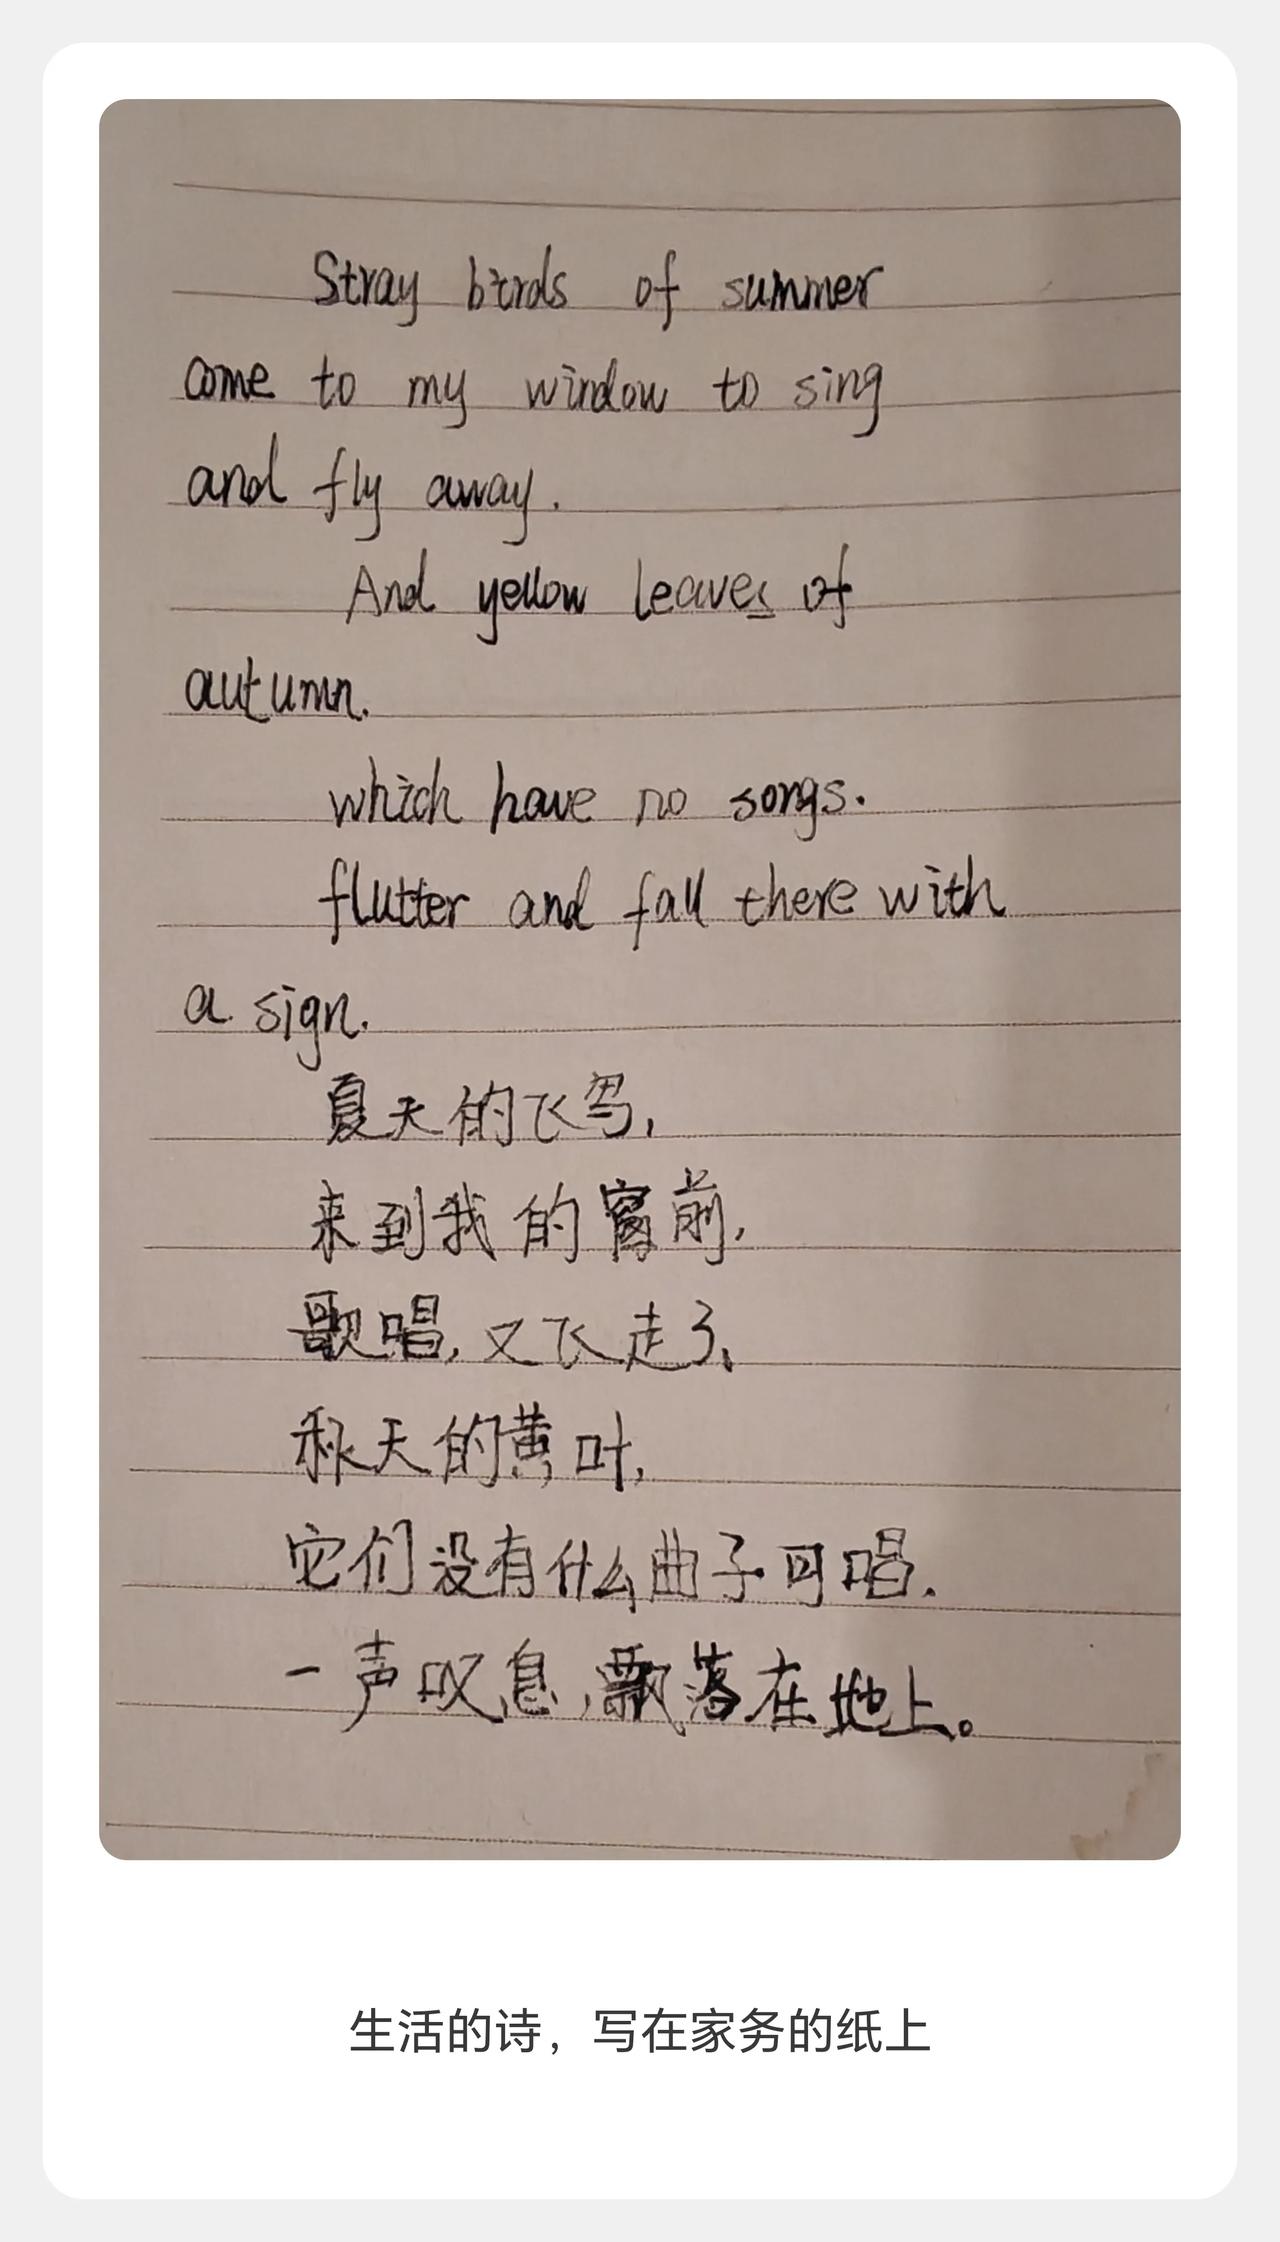 Stray birds of summer
come to my window to sing
and fly away.
And yellow leaves of
autumn.
which have no songs.
flutter and fall there with
a sign.
夏天的飞鸟，
来到我的窗前，
歌唱，又飞走了、
秋天的黄叶，
它们没有什么曲子可唱.
一声叹息，飘落在地上。
生活的诗，写在家务的纸上